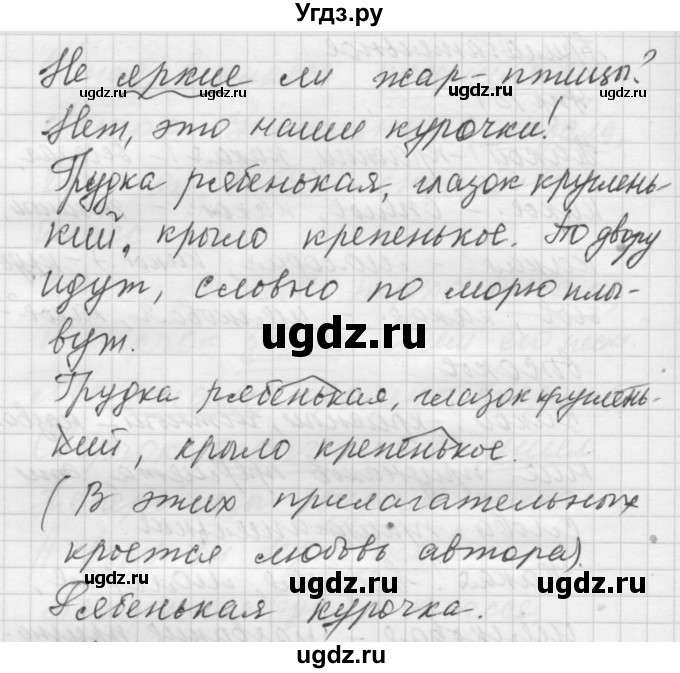 Угдз.ру
Не яркие ли жар-птицы?
ugdz.ru ugdz.ru
Нет, это наши курочки!
Грудка рябенькая, глазок круглень-
ugdz.ru ugdz.ru
кий, крыло крепенькое. По двору
идут, словно по морю плы-
ugdz.ru
вут.
Грудка рябенькая, глазок круглень-
ugdz.ru ugdz.ru
кий, крыло крепенькое.
(В этих прилагательных
ugdz.ru
кроется любовь автора).
ugdz.ru ugdz.ru
Рябенькая курочка.
ugdz.ru